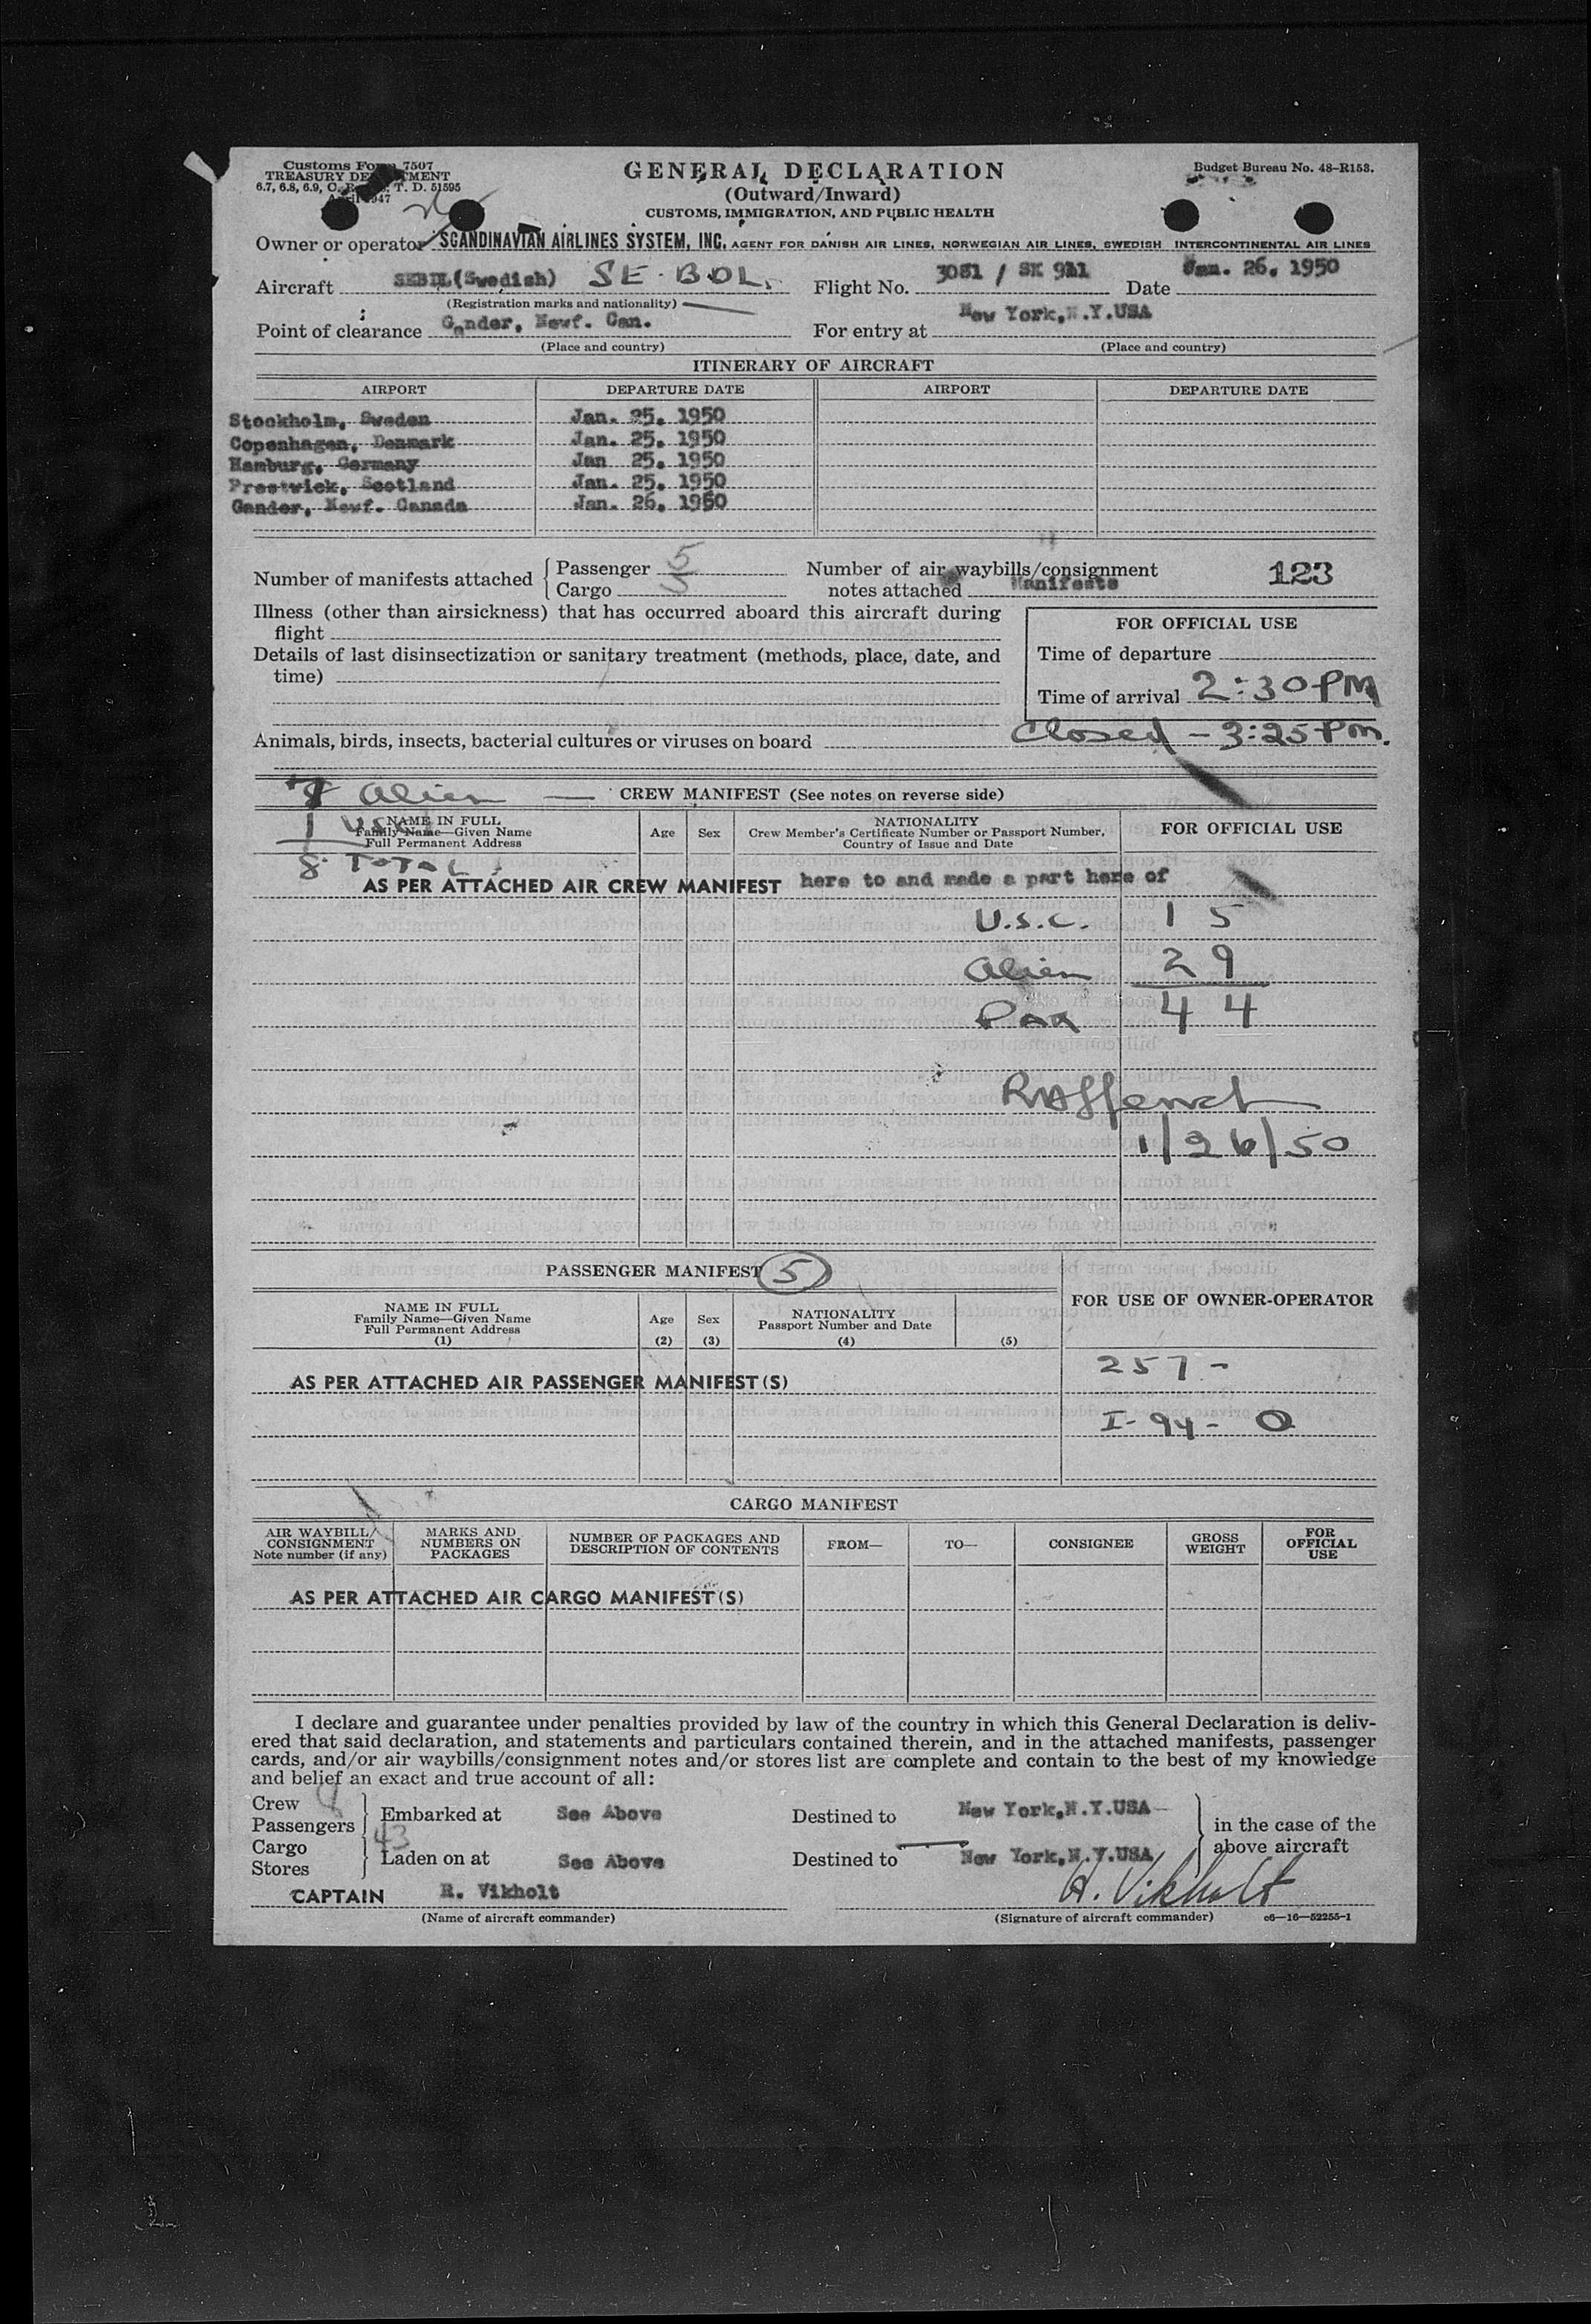 Customs Form 7507
TREASURY DEPARTMENT
6.7, 6.8, 6.9, C. R. T. D. 51595
April 1947
GENERAL DECLARATION
(Outward/Inward)
CUSTOMS, IMMIGRATION, AND PUBLIC HEALTH
Budget Bureau No. 48-R153.
Owner or operator SCANDINAVIAN AIRLINES SYSTEM, INC. AGENT FOR DANISH AIR LINES, NORWEGIAN AIR LINES, SWEDISH INTERCONTINENTAL AIR LINES
Aircraft SEBIL(Swedish) SE-BDL. Flight No. 3051 / SK 911 Date Jan. 26, 1950
(Registration marks and nationality)
Point of clearance Gander, Newf. Can. For entry at New York, N.Y.USA
(Place and country) (Place and country)
ITINERARY OF AIRCRAFT
AIRPORT DEPARTURE DATE AIRPORT DEPARTURE DATE
Stockholm, Sweden Jan. 25, 1950
Copenhagen, Denmark Jan. 25, 1950
Hamburg, Germany Jan 25, 1950
Prestwick, Scotland Jan. 25, 1950
Gander, Newf. Canada Jan. 26, 1950
Number of manifests attached { Passenger 5
Cargo 5
Number of air waybills/consignment
notes attached Manifests 123
Illness (other than airsickness) that has occurred aboard this aircraft during
flight
Details of last disinsectization or sanitary treatment (methods, place, date, and
time)
FOR OFFICIAL USE
Time of departure
Time of arrival 2:30 PM
Closed - 3:25 Pm.
Animals, birds, insects, bacterial cultures or viruses on board
Alien — CREW MANIFEST (See notes on reverse side)
1 USC
8 TOTAL
NAME IN FULL
Family Name—Given Name
Full Permanent Address
Age Sex
NATIONALITY
Crew Member's Certificate Number or Passport Number,
Country of Issue and Date
FOR OFFICIAL USE
AS PER ATTACHED AIR CREW MANIFEST here to and made a part here of
U.S.C. 15
Alien 29
Pax 44
1/26/50
PASSENGER MANIFEST 5
NAME IN FULL
Family Name—Given Name
Full Permanent Address
(1)
Age
(2)
Sex
(3)
NATIONALITY
Passport Number and Date
(4)
(5)
FOR USE OF OWNER-OPERATOR
AS PER ATTACHED AIR PASSENGER MANIFEST(S)
257 -
I-94- 0
CARGO MANIFEST
AIR WAYBILL/
CONSIGNMENT
Note number (if any)
MARKS AND
NUMBERS ON
PACKAGES
NUMBER OF PACKAGES AND
DESCRIPTION OF CONTENTS
FROM—
TO—
CONSIGNEE
GROSS
WEIGHT
FOR
OFFICIAL
USE
AS PER ATTACHED AIR CARGO MANIFEST(S)
I declare and guarantee under penalties provided by law of the country in which this General Declaration is deliv-
ered that said declaration, and statements and particulars contained therein, and in the attached manifests, passenger
cards, and/or air waybills/consignment notes and/or stores list are complete and contain to the best of my knowledge
and belief an exact and true account of all:
Crew
Passengers 43
Embarked at See Above Destined to New York,N.Y.USA
Cargo
Stores
Laden on at See Above Destined to New York,N.Y.USA
in the case of the
above aircraft
CAPTAIN R. Vikholt
H. Vikholt
(Name of aircraft commander) (Signature of aircraft commander) c6—16—52255-1